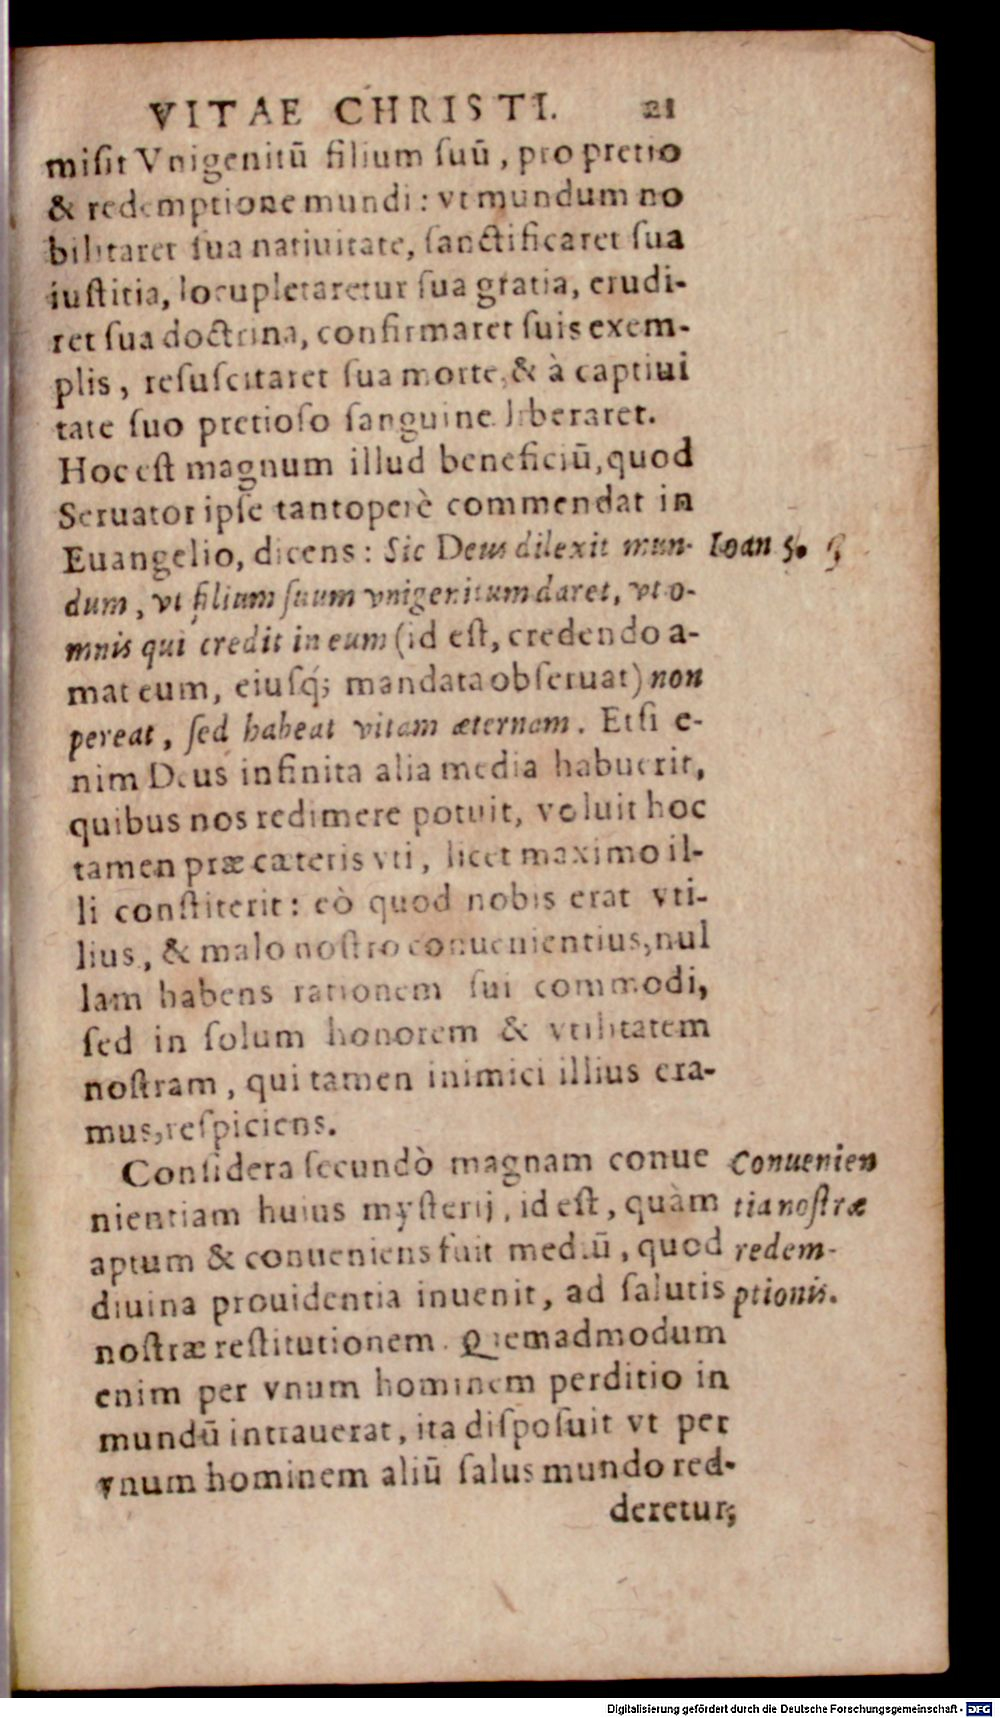 VITAE CHRISTI. 21
misit Vnigenitū filium suū, pro pretio
& redemptione mundi: vt mundum no
bilitaret sua natiuitate, sanctificaret sua
iustitia, locupletaretur sua gratia, erudi-
ret sua doctrina, confirmaret suis exem-
plis, resuscitaret sua morte, & à captiui
tate suo pretioso sanguine liberaret.
Hoc est magnum illud beneficiū, quod
Seruator ipse tantoperè commendat in
Euangelio, dicens: Sic Deus dilexit mun-
Ioan 3.
dum, vt filium suum vnigenitum daret, vt o-
mnis qui credit in eum (id est, credendo a-
mat eum, eiusq́; mandata obseruat) non
pereat, sed habeat vitam æternam. Etsi e-
nim Deus infinita alia media habuerit,
quibus nos redimere potuit, voluit hoc
tamen præ cæteris vti, licet maximo il-
li constiterit: eò quod nobis erat vti-
lius, & malo nostro conuenientius, nul
lam habens rationem sui commodi,
sed in solum honorem & vtilitatem
nostram, qui tamen inimici illius era-
mus, respiciens.
Considera secundò magnam conue
nientiam huius mysterij, id est, quàm
aptum & conueniens fuit mediū, quod
diuina prouidentia inuenit, ad salutis
Conuenien
tia nostræ
redem-
ptionis.
nostræ restitutionem. Quemadmodum
enim per vnum hominem perditio in
mundū intrauerat, ita disposuit vt per
vnum hominem aliū salus mundo red-
deretur;
Digitalisierung gefördert durch die Deutsche Forschungsgemeinschaft - DFG